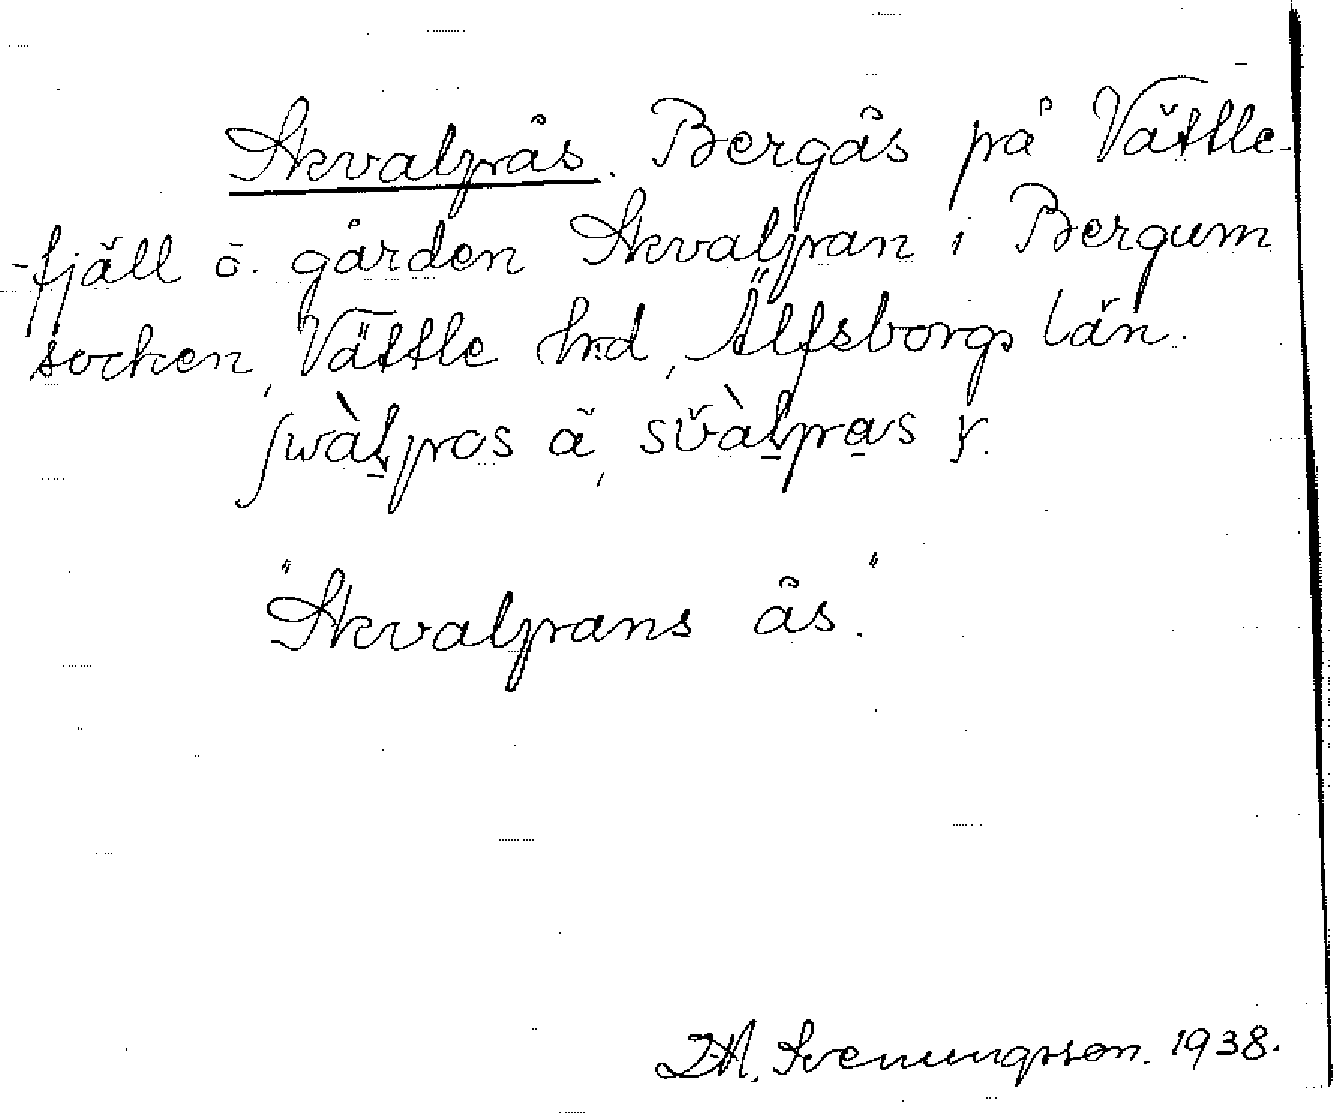 Skvalpås. Bergås på Vättle-
fjäll ö. gården Skvalpan i Bergum
socken, Vättle hd, Älfsborgs län.
ä, y.
"Skvalpans ås."
Svenungsson. 1938.